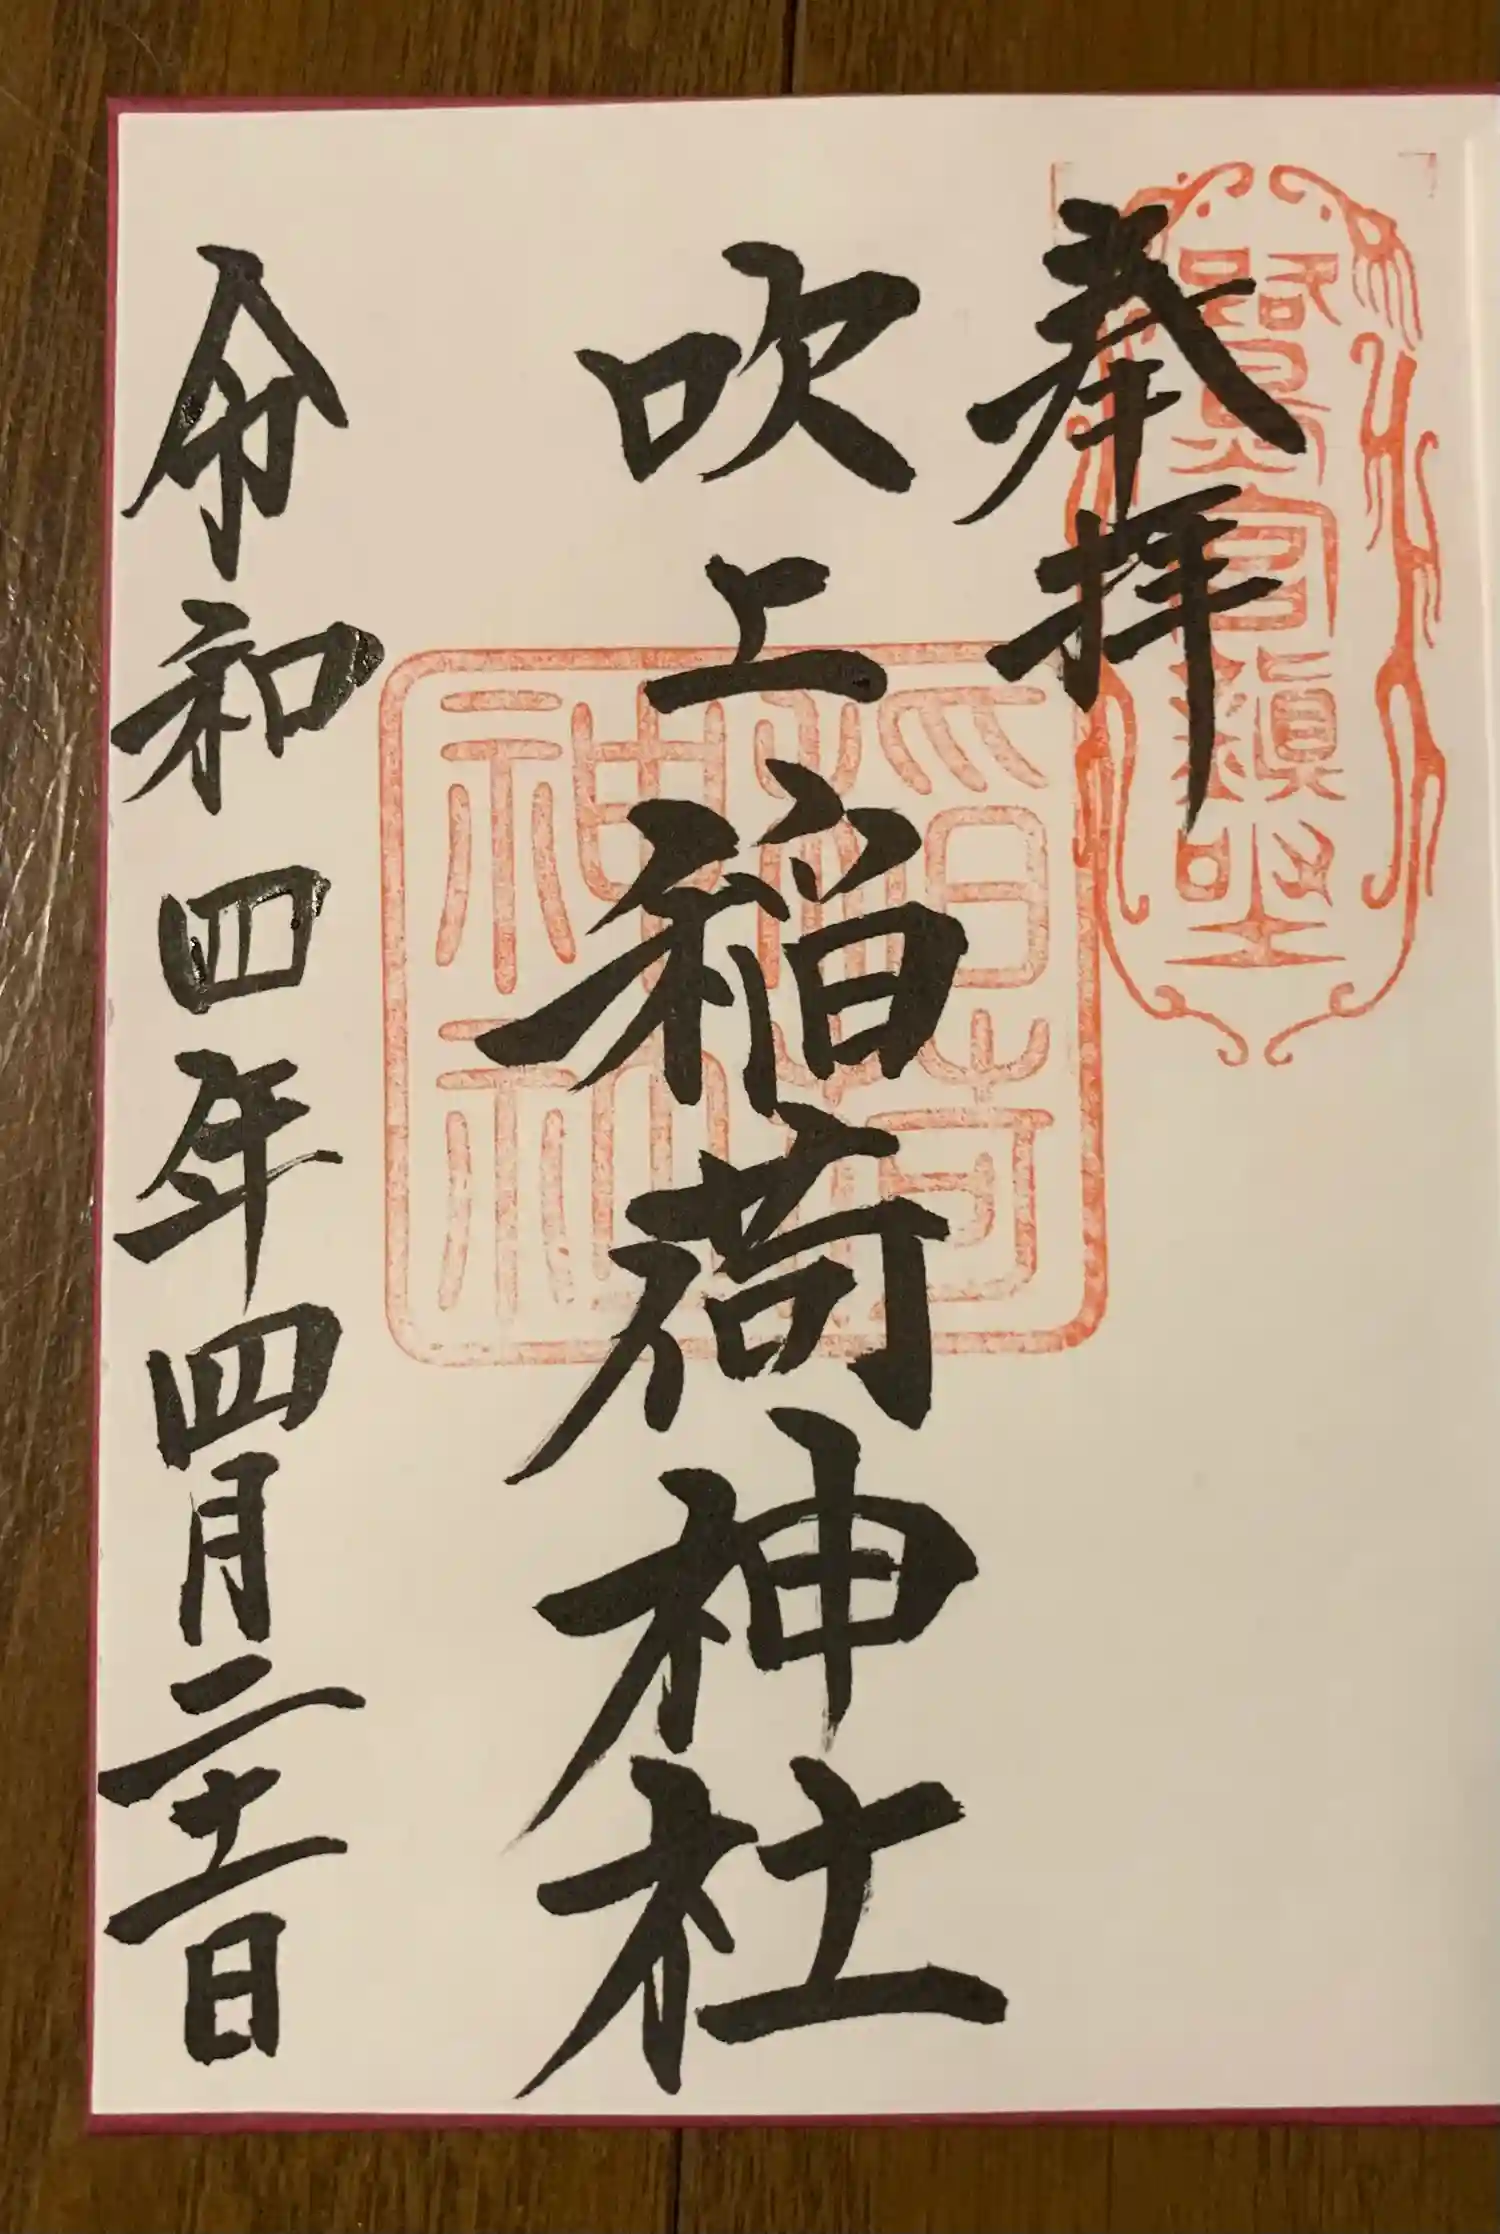 鷺宮鎮坐
奉拝
吹上稲荷神社
稲荷
神社
令和四年四月二十一日